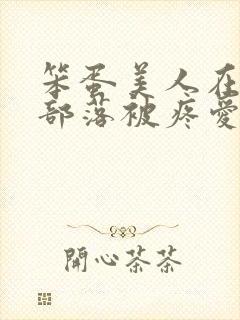 笨蛋美人在
部落被疼愛
開心茶茶